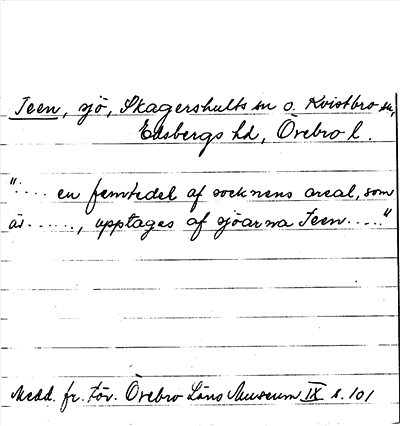 Teen, sjö, Skagershults sn o. Kvistbro sn,
Edsbergs hd, Örebro l.
"..... en femtedel af socknens areal, som
är ......., upptages af sjöarna Teen ....."
Medd. fr. För. Örebro Läns Museum IX s. 101